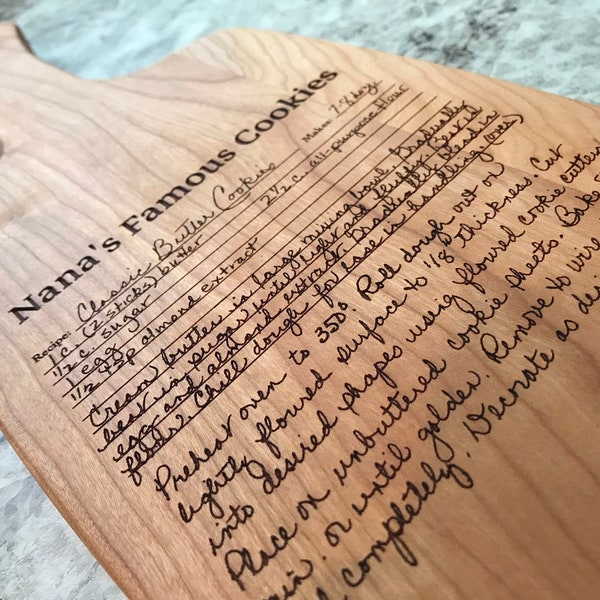 Nana's Famous Cookies
Recipe: Classic Butter Cookies Makes: 7-8 doz
1 c. (2 sticks) butter 2 1/2 c. all-purpose flour
1/2 c. sugar
1 egg
1 1/2 tsp almond extract
Cream butter in large mixing bowl. Gradually
beat in sugar until light and fluffy. Beat in
egg and almond extract. Gradually blend in
flour. Chill dough for ease in handling. (over)
Preheat oven to 350°. Roll dough out on
lightly floured surface to 1/8" thickness. Cut
into desired shapes using floured cookie cutters
Place on unbuttered cookie sheets. Bake
min. or until golden. Remove to wire
completely. Decorate as